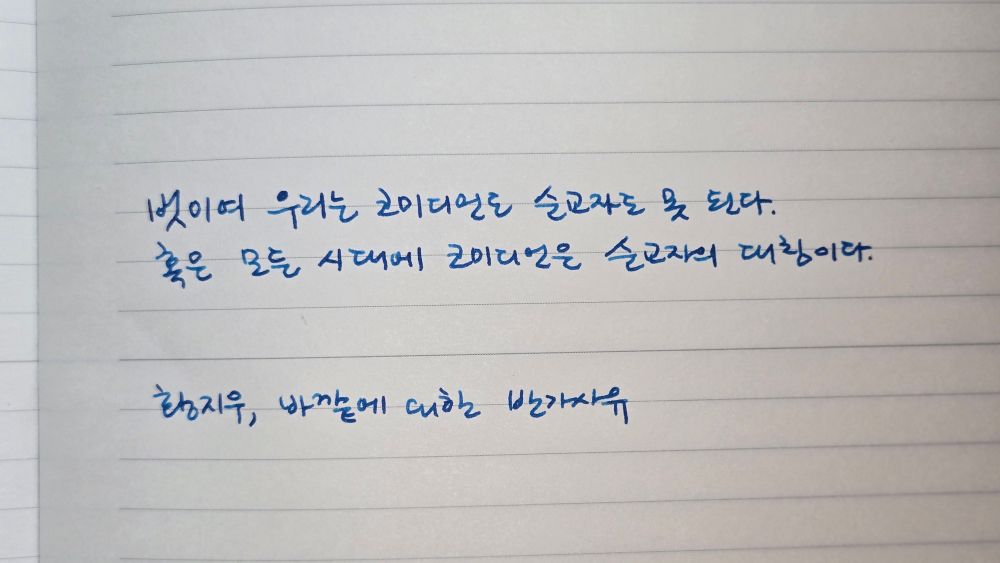 벗이여 우리는 코미디언도 순교자도 못 된다.
혹은 모든 시대에 코미디언은 순교자의 대칭이다.
황지우, 바깥에 대한 반가사유